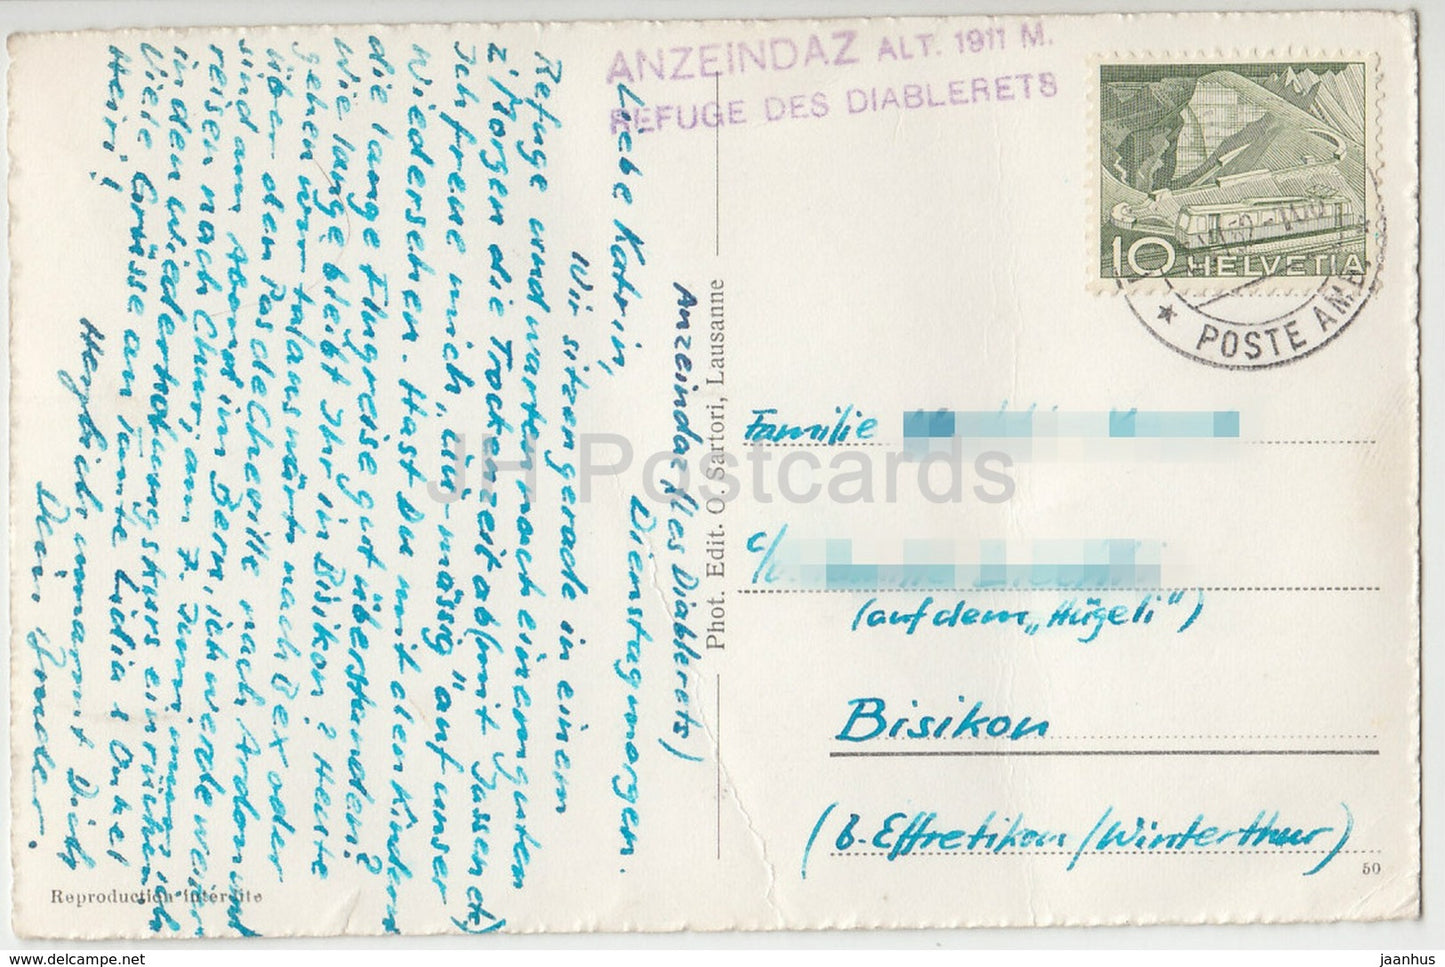 ANZEINDAZ ALT. 1911 M.
REFUGE DES DIABLERETS
10 HELVETIA
POSTE AMB
Anzeindaz (les Diablerets)
Dienstagmorgen.
Liebe Katrin,
Wir sitzen gerade in einem
Refuge und warten nach einem guten
z'Morgen die Trockenzeit ab (mit Jassen!)
Ich freue mich, auf unser
Wiedersehen. Hast Du mit den Kindern
die lange Flugreise gut überstanden?
Wie lange bleibt Ihr in Bisikon? Heute
gehen wir talauswärts nach Bex oder
über den Pas de Cheville nach Ardon und
sind am Abend in Bern, ich werde weiter
reisen nach Chur, am 7. Juni
in den Wiederholungskurs einrücken.
Viele Grüsse an Tante Lydia & Onkel
Heiri!
Herzlich umarmt Dich
Dein Bruder.
Phot. Edit. O. Sartori, Lausanne
Familie
c/o
(auf dem "Hügeli")
Bisikon
(b. Effretikon/Winterthur)
50
Reproduction interdite
JH Postcards
www.delcampe.net
jaanhus